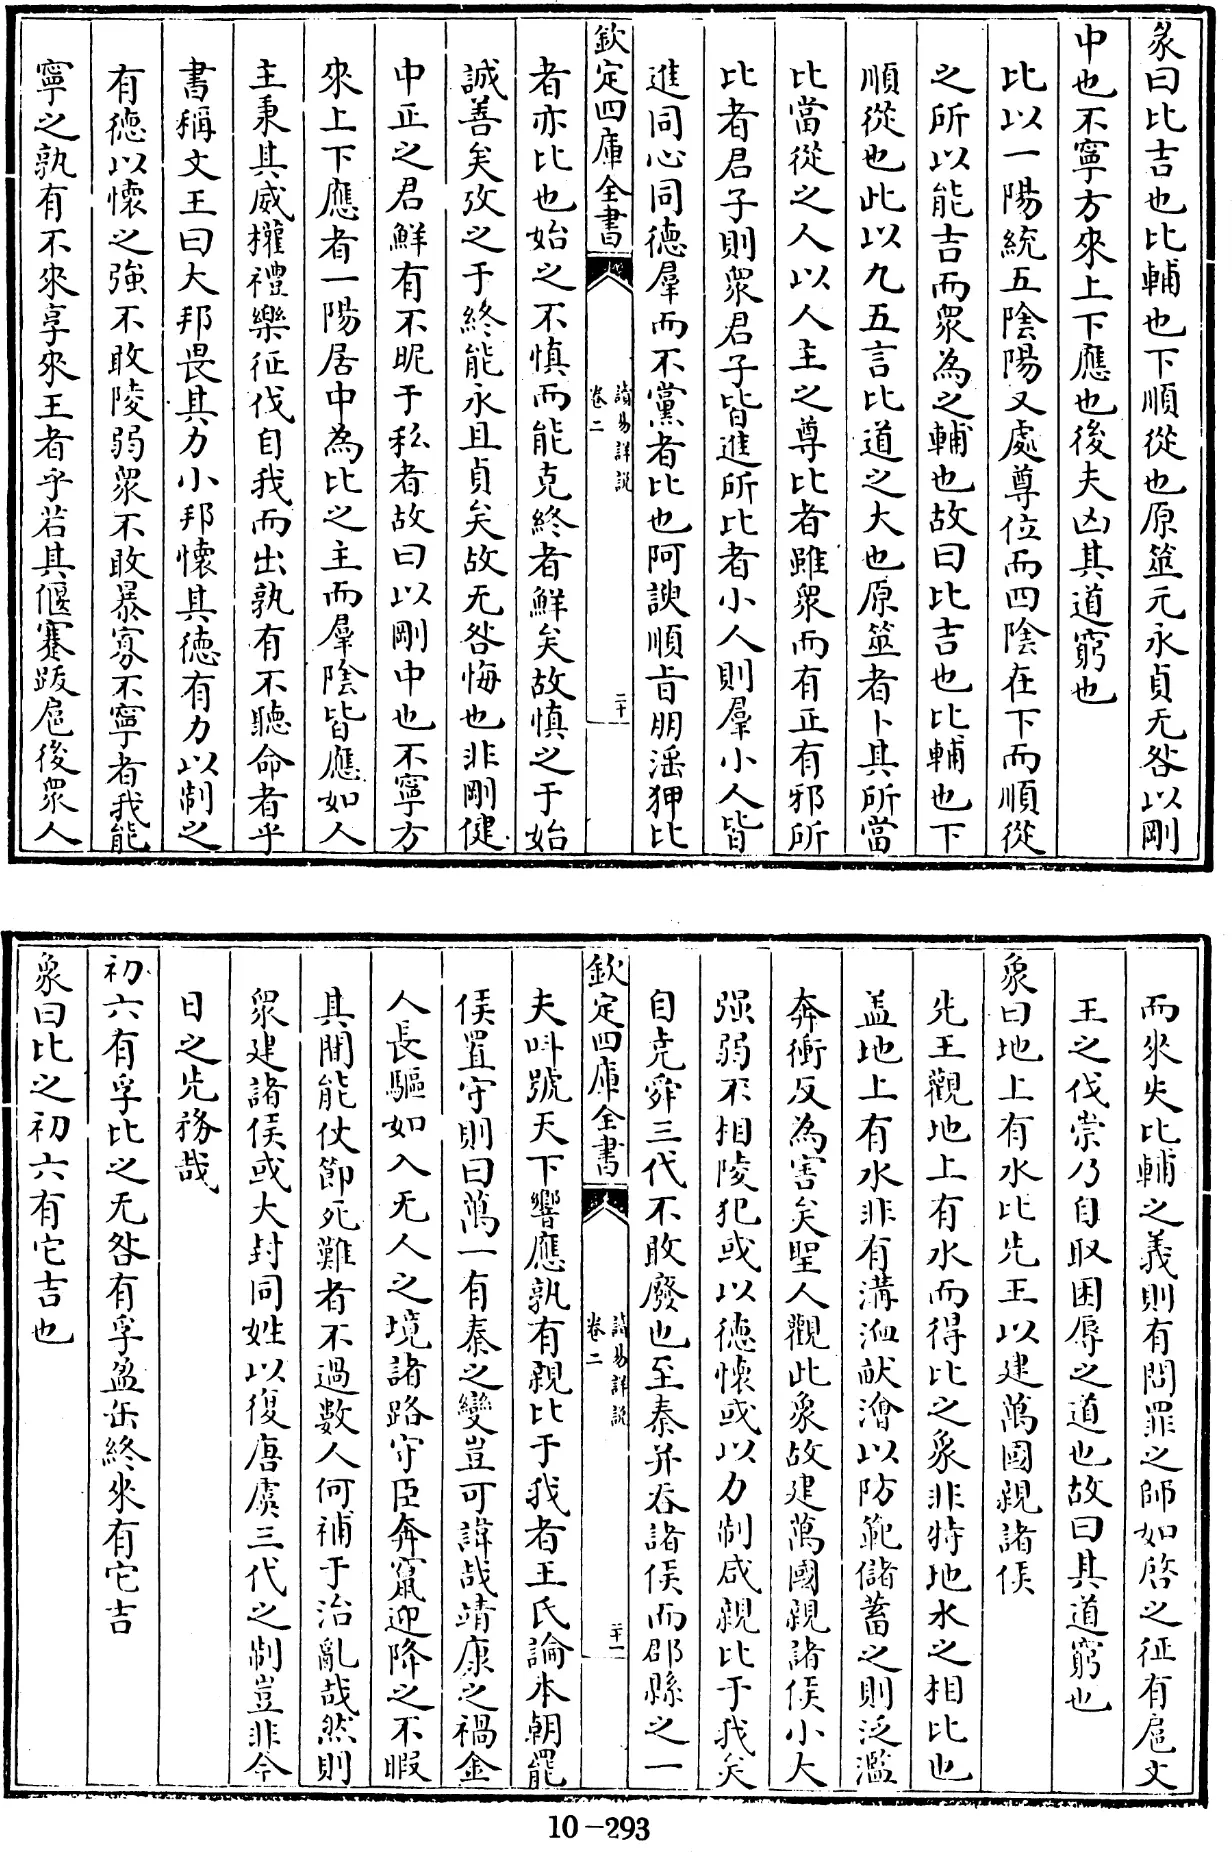 彖曰比吉也比輔也下順從也原筮元永貞无咎以剛
中也不寧方來上下應也後夫凶其道窮也
比以一陽統五陰陽又處尊位而四陰在下而順從
之所以能吉而衆為之輔也故曰比吉也比輔也下
順從也此以九五言比道之大也原筮者卜其所當
比當從之人以人主之尊比者雖衆而有正有邪所
比者君子則衆君子皆進所比者小人則羣小人皆
進同心同德羣而不黨者比也阿諛順㫖朋淫狎比
欽定四庫全書
讀易詳說
卷二
二十
者亦比也始之不慎而能克終者鮮矣故慎之于始
誠善矣攷之于終能永且貞矣故无咎悔也非剛健
中正之君鮮有不昵于私者故曰以剛中也不寧方
來上下應者一陽居中為比之主而羣陰皆應如人
主秉其威權禮樂征伐自我而出孰有不聽命者乎
書稱文王曰大邦畏其力小邦懷其德有力以制之
有德以懷之強不敢陵弱衆不敢暴寡不寧者我能
寧之孰有不來享來王者乎若其偃蹇跋扈後衆人
而來失比輔之義則有問罪之師如啓之征有扈文
王之伐崇乃自取困辱之道也故曰其道窮也
象曰地上有水比先王以建萬國親諸侯
先王觀地上有水而得比之象非特地水之相比也
盖地上有水非有溝洫畎澮以防範儲蓄之則泛濫
奔衝反為害矣聖人觀此象故建萬國親諸侯小大
强弱不相陵犯或以德懷或以力制咸親比于我矣
自堯舜三代不敢廢也至秦并吞諸侯而郡縣之一
欽定四庫全書
讀易詳說
卷二
二十一
夫呌號天下響應孰有親比于我者王氏論本朝罷
侯置守則曰萬一有秦之變豈可諱哉靖康之禍金
人長驅如入无人之境諸路守臣奔竄迎降之不暇
其間能仗節死難者不過數人何補于治亂哉然則
衆建諸侯或大封同姓以復唐虞三代之制豈非今
日之先務哉
初六有孚比之无咎有孚盈缶終來有它吉
象曰比之初六有它吉也
10-293